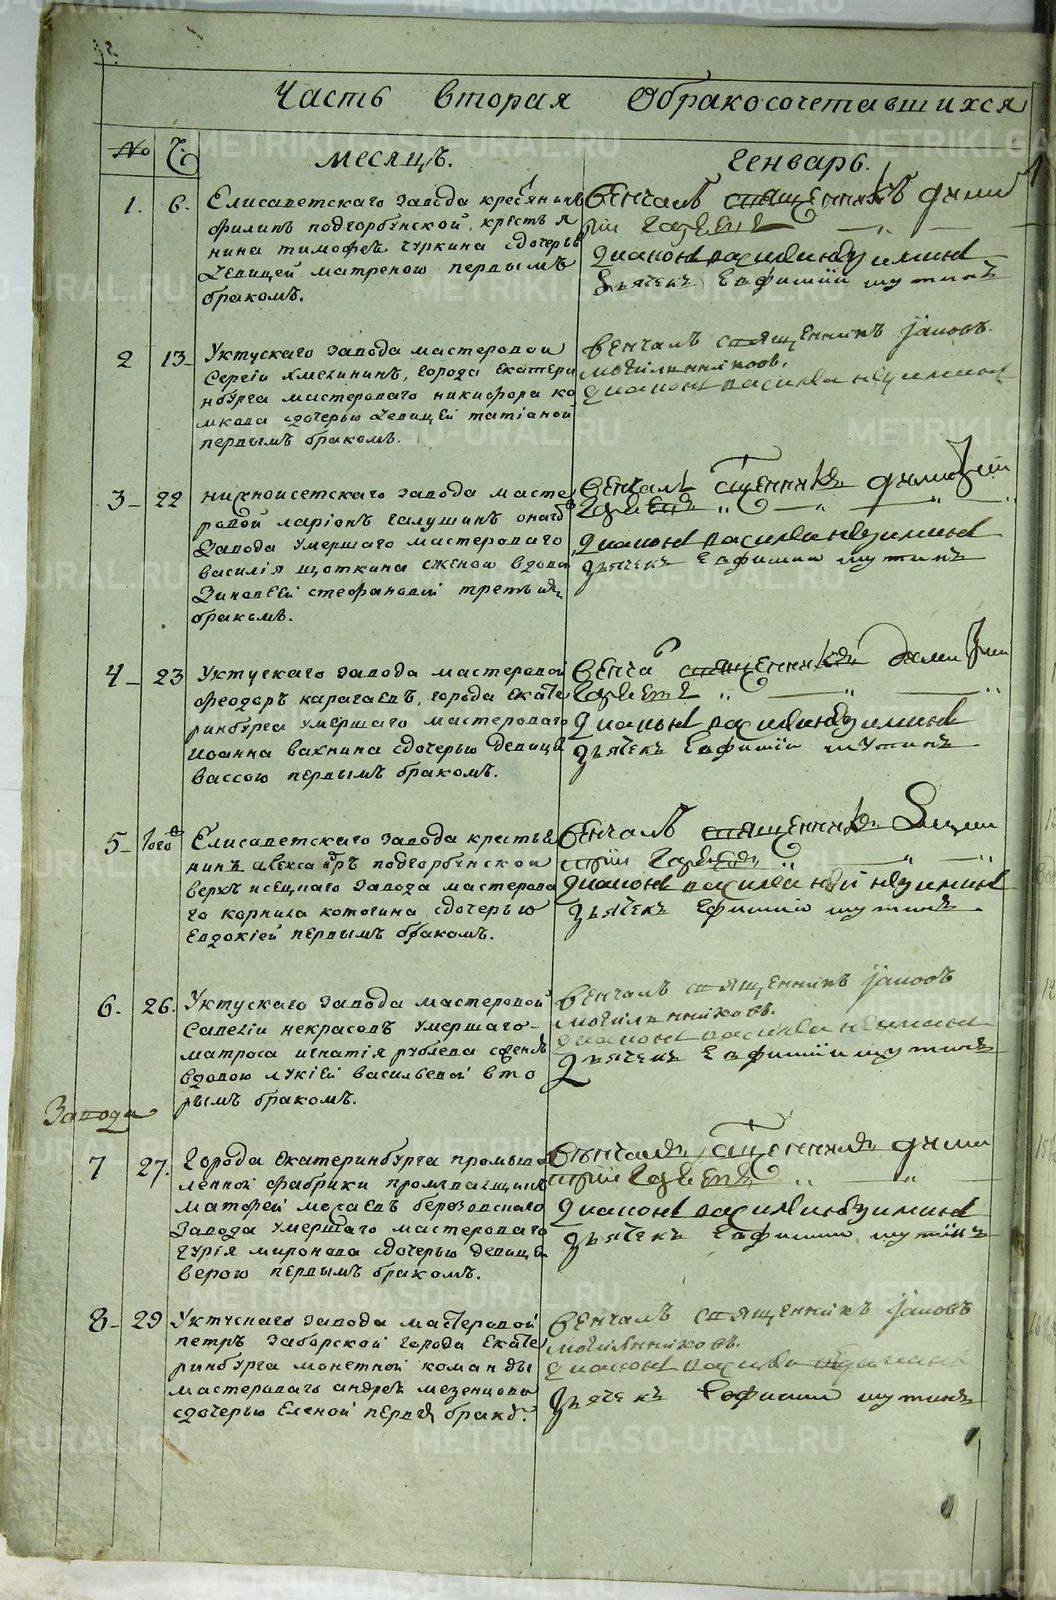 Часть вторая Обракосочетавшихся
№ Ч. месяцъ. Генварь.
1. 6. Елисаветскаго завода кресянинъ
филипъ подгорбунской, крестья
нина тимофея чуркина сдочерью
девицей матреною первымъ
бракомъ.
Венчалъ священникъ дими
трiй
диаконъ василий
дьячекъ Евфимiй шутинъ
2 13 Уктускаго завода мастеровои
Сергiи хмелининъ, города екатери
нбурга мастероваго никифора ко
мкова сдочерью девицей татiаной
первымъ бракомъ.
Венчалъ священникъ Iаковъ
диаконъ василий
3 22 нижноисетскаго завода масте
ровой ларiонъ галушинъ онаго
завода умершаго мастероваго
василiя щоткина сженою вдовои
Зиновеей стефановой третьимъ
бракомъ.
Венчалъ священникъ димитрiй
диаконъ василий
дьячекъ Евфимiи шутинъ
4 23 Уктускаго завода мастеровой
феодоръ карагаевъ, города екате
ринбурга умершаго мастероваго
иоанна вакнина сдочерью девицей
вассою первымъ бракомъ.
Венча священникъ димитрiй
диаконъ василий
дьячекъ Евфимiи шутинъ
5 того Елисаветскаго завода крестья
нинъ александръ подгорбунской
верхъ исецкаго завода мастерова
го корнила котогина сдочерью
Евдокiей первымъ бракомъ.
Венчалъ священникъ Дими
трiй
диаконъ василий
дьячекъ Ефимiй шутинъ
6. 26. Уктускаго завода мастеровой
Савелiи некрасовъ умершаго
матроса игнатiя рублева сженою
вдовою лукiей васильевой вто
рымъ бракомъ.
Венчалъ священникъ Iаковъ
диаконъ василий
дьячекъ Евфимiи шутинъ
Завода
7 27. Города екатеринбурга промыва
ленной фабрики промывальщикъ
матфей мохаевъ березовскаго
завода умершаго мастероваго
гурiя миронова сдочерью девицей
верою первымъ бракомъ.
Венчалъ священникъ дими
трiй
диаконъ василий
дьячекъ Евфимiи шутинъ
8 29 Уктускаго завода мастеровой
петръ заборской города екате
ринбурга монетной команды
мастероваго андрея мезенцова
сдочерью Еленой первым браком.
Венчалъ священникъ Iаковъ
диаконъ василий
дьячекъ Евфимiи шутинъ